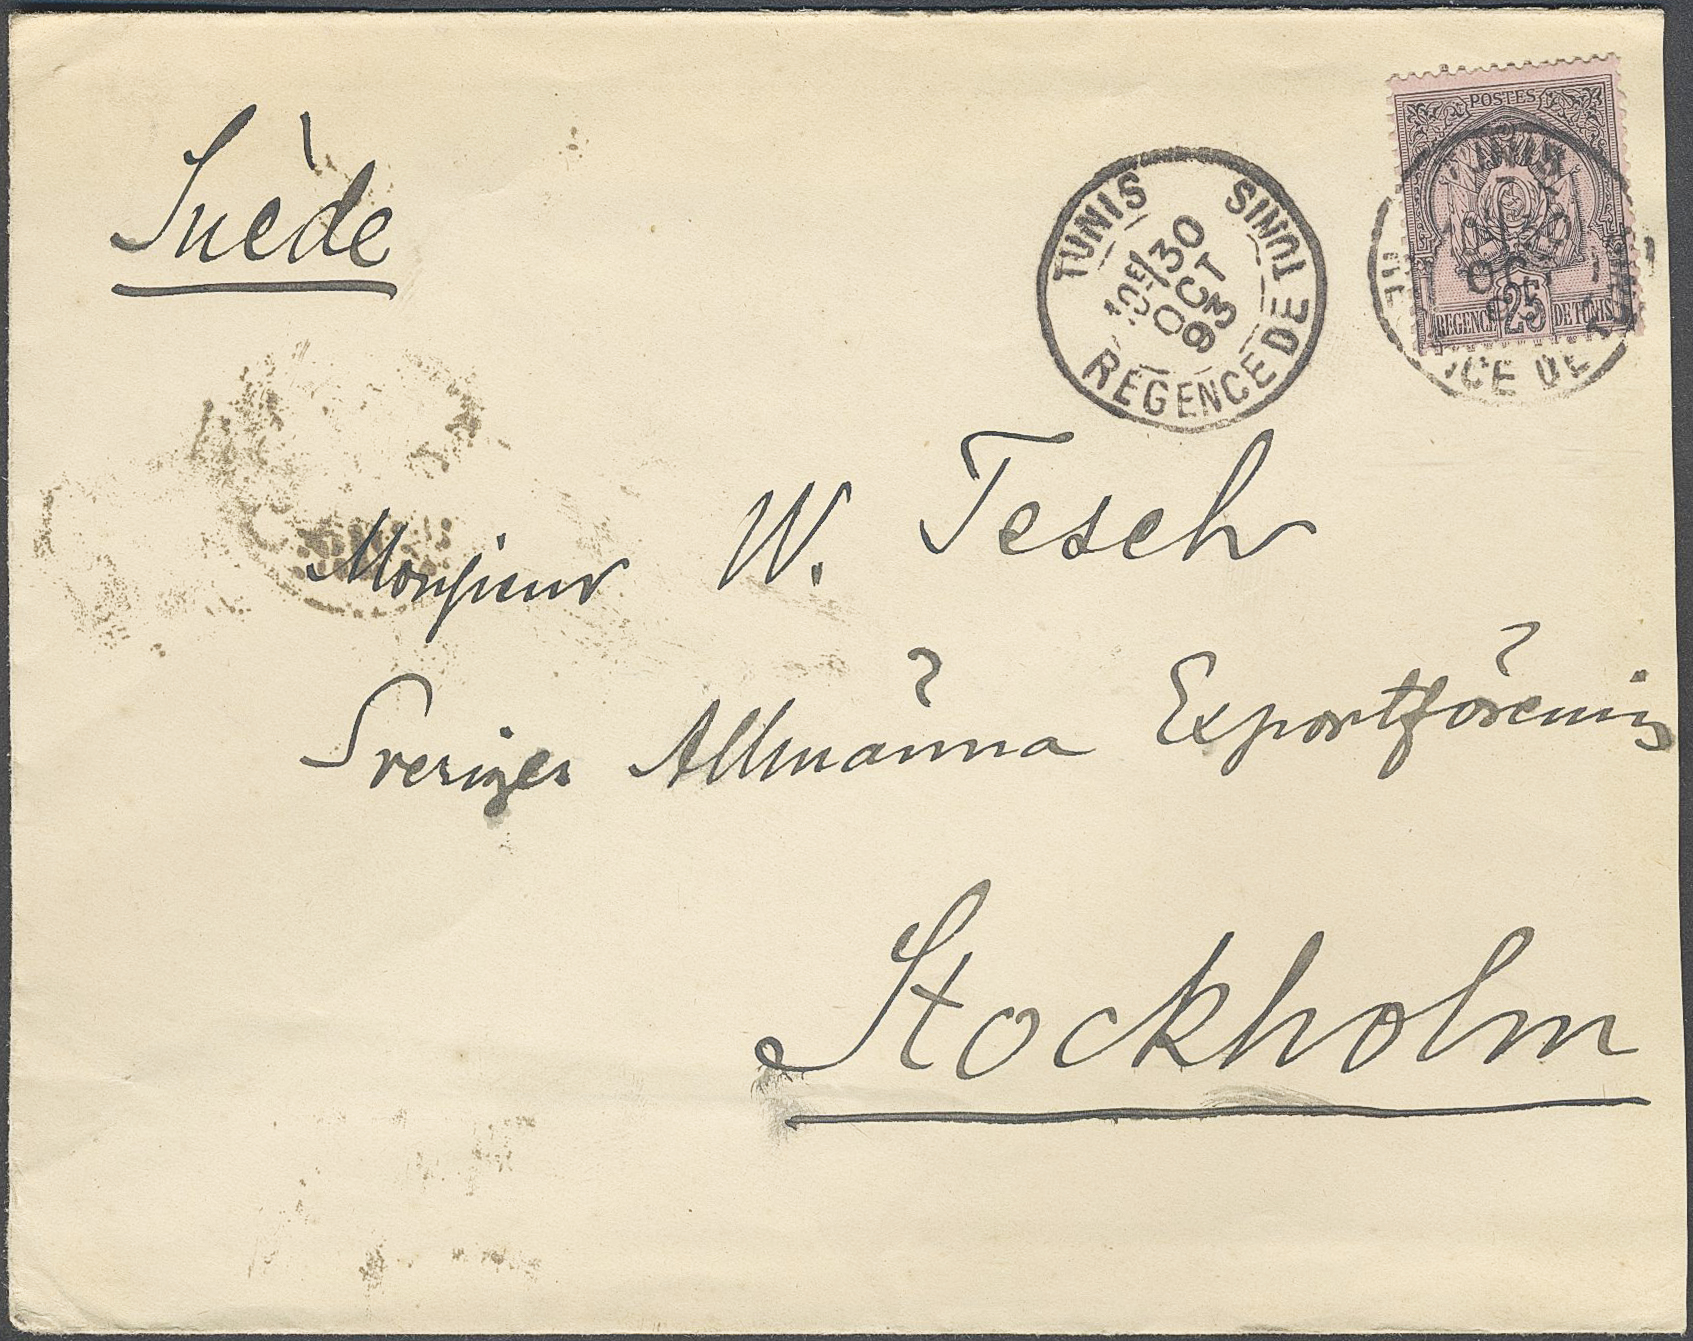 Suède
POSTES
REGENCE 25 DE TUNIS
TUNIS TUNIS
10E/30
OCT
93
REGENCE DE
Monsieur W. Tesch
Sveriges Allmänna Exportförening
Stockholm